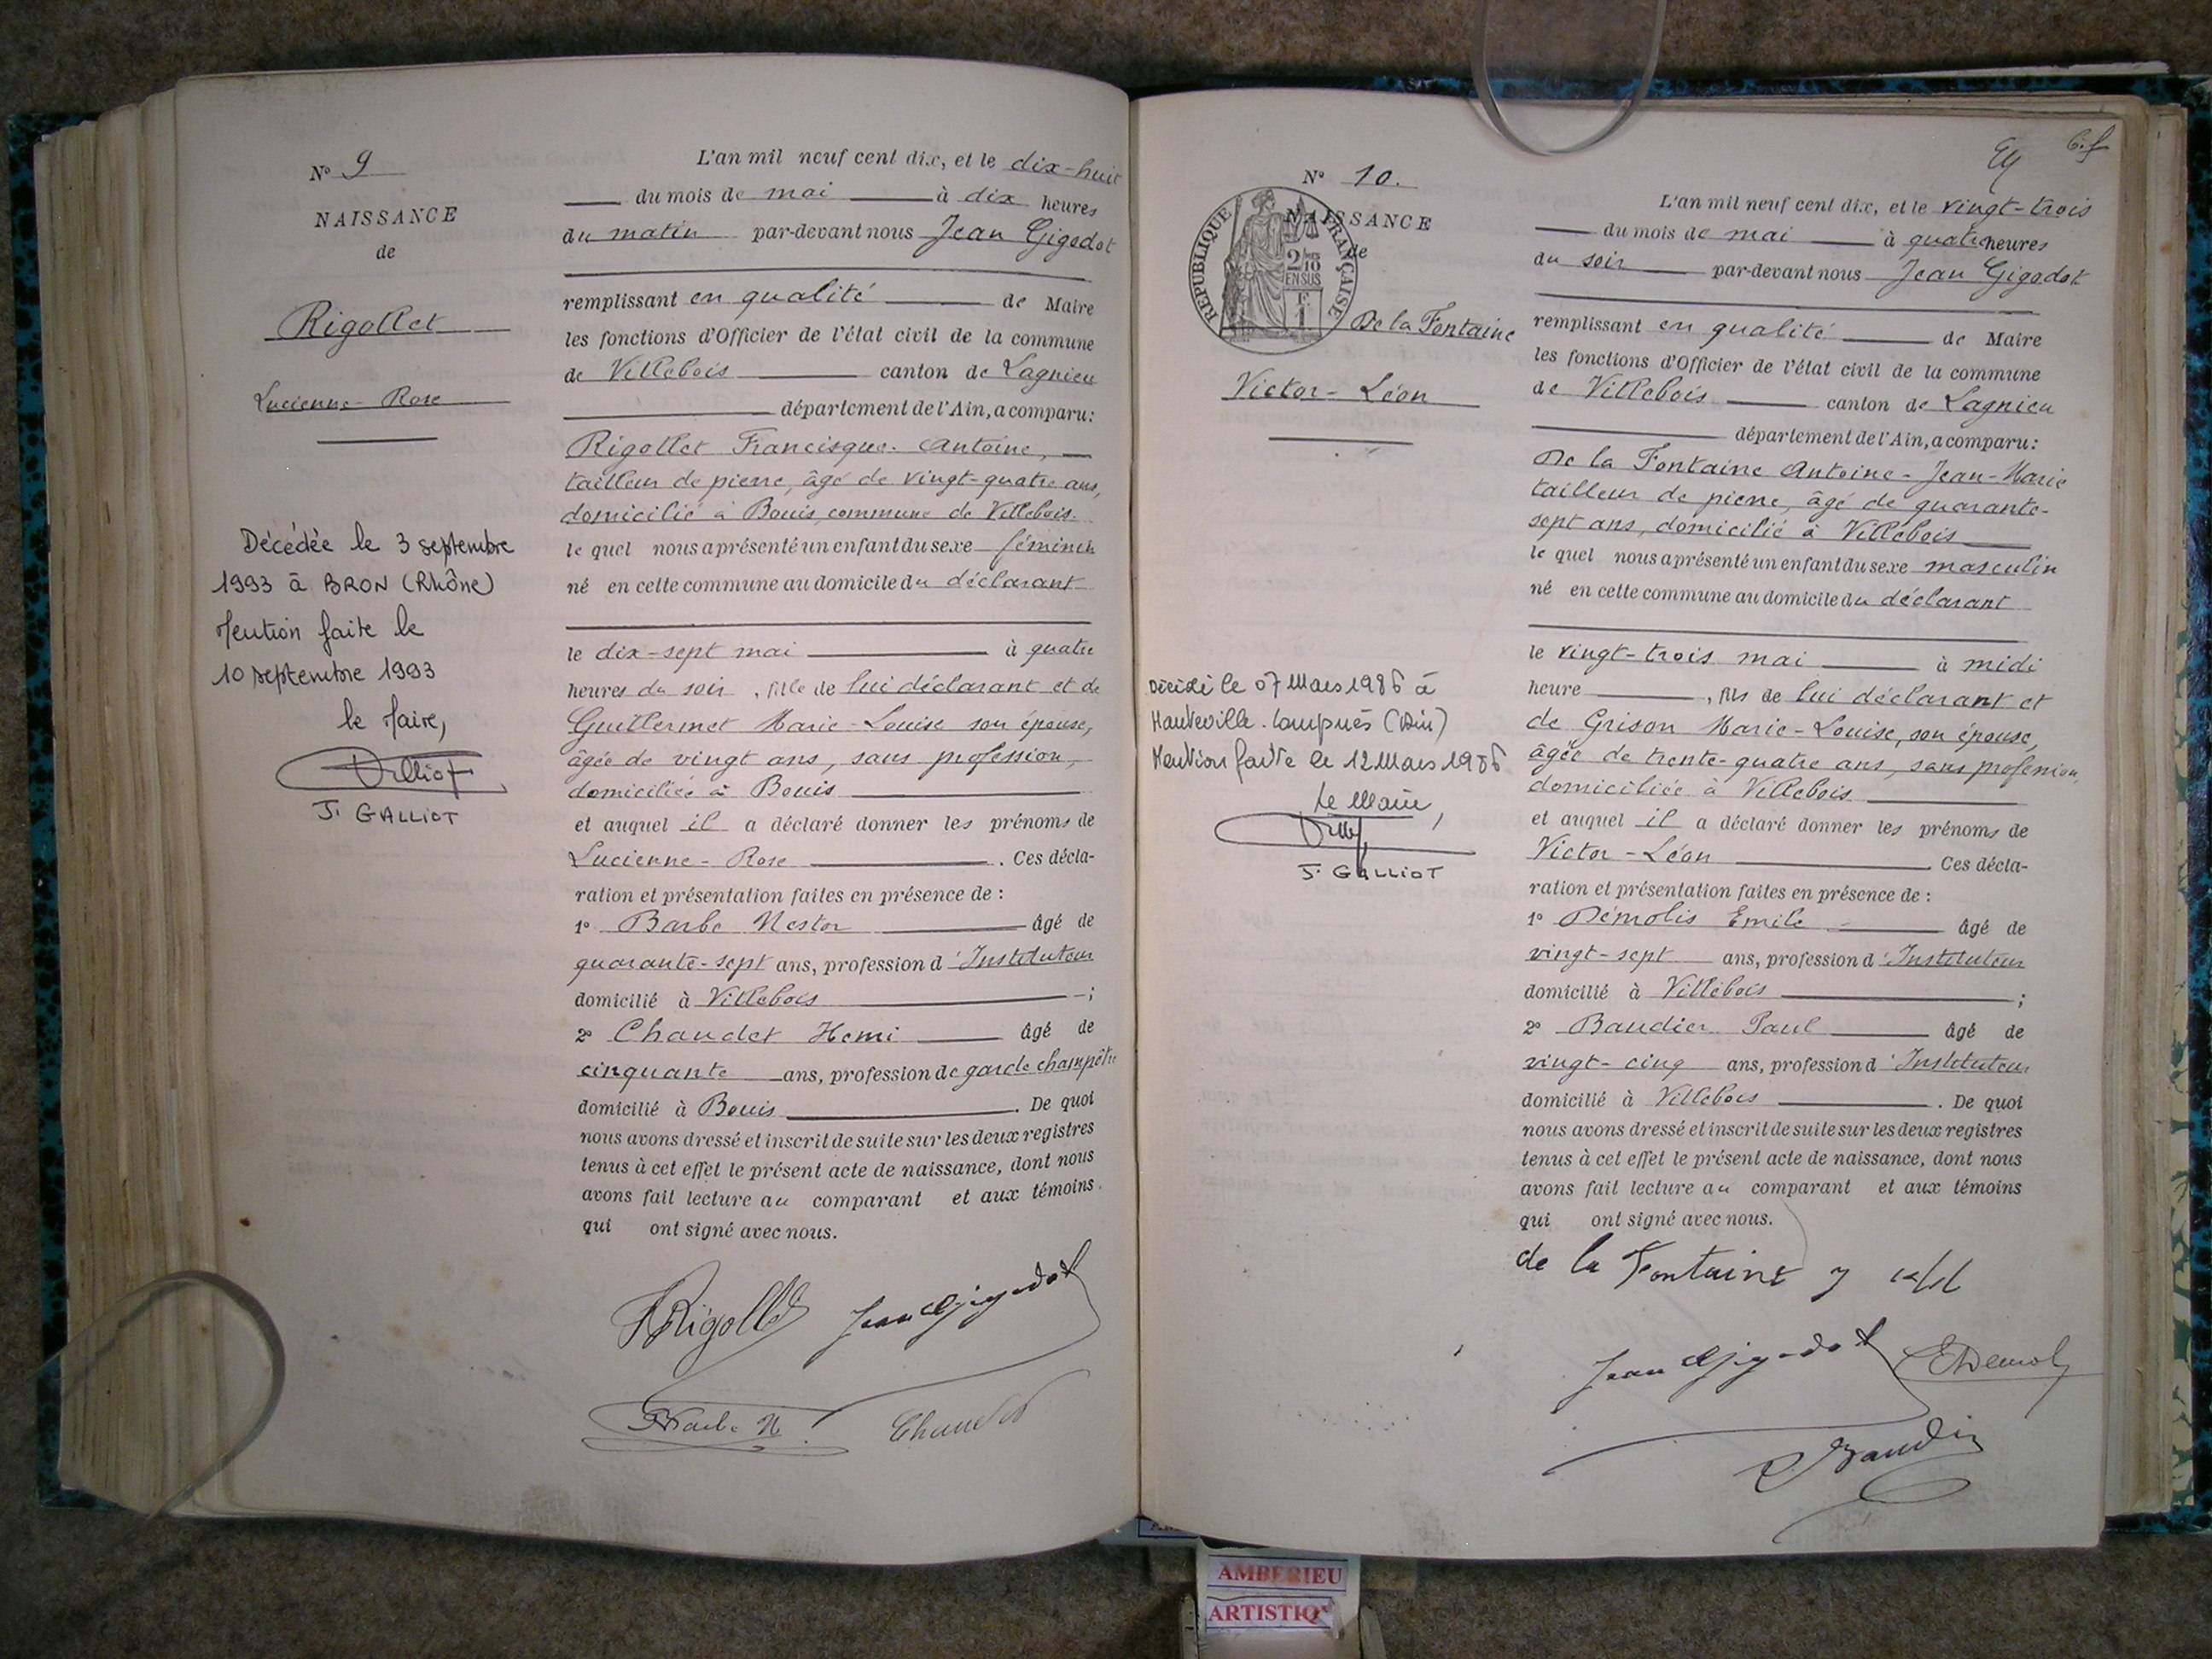 N° 9
NAISSANCE
de
Rigollet
Lucienne-Rose
Décédée le 3 septembre
1993 à BRON (Rhône)
Mention faite le
10 septembre 1993
le Maire,
J. GALLIOT
L'an mil neuf cent dix, et le dix-huit
du mois de mai à dix heures
du matin par-devant nous Jean Gigodot
remplissant en qualité de Maire
les fonctions d'Officier de l'état civil de la commune
de Villebois canton de Lagnieu
département de l'Ain, a comparu:
Rigollet Francisque-Antoine,
tailleur de pierre, âgé de vingt-quatre ans,
domicilié à Bouis, commune de Villebois.
le quel nous a présenté un enfant du sexe féminin
né en cette commune au domicile du déclarant
le dix-sept mai à quatre
heures du soir, fille de lui déclarant et de
Guillermet Marie-Louise son épouse,
âgée de vingt ans, sans profession,
domiciliée à Bouis
et auquel il a déclaré donner les prénoms de
Lucienne-Rose. Ces décla-
ration et présentation faites en présence de :
1° Barbe Nestor âgé de
quarante-sept ans, profession d'Instituteur
domicilié à Villebois ;
2° Chaudet Henri âgé de
cinquante ans, profession de garde champêtre
domicilié à Bouis. De quoi
nous avons dressé et inscrit de suite sur les deux registres
tenus à cet effet le présent acte de naissance, dont nous
avons fait lecture au comparant et aux témoins.
qui ont signé avec nous.
Rigollet Jean Gigodot
Barbe N. Chaudet
6.f
N° 10.
NAISSANCE
de
REPUBLIQUE FRANÇAISE
2/10
EN SUS
De la Fontaine
Victor-Léon
Décédé le 07 Mars 1986 à
Hauteville-Lompnès (Ain)
Mention faite le 12 Mars 1986
Le Maire,
J. GALLIOT
L'an mil neuf cent dix, et le vingt-trois
du mois de mai à quatre heures
du soir par-devant nous Jean Gigodot
remplissant en qualité de Maire
les fonctions d'Officier de l'état civil de la commune
de Villebois canton de Lagnieu
département de l'Ain, a comparu:
De la Fontaine Antoine-Jean-Marie
tailleur de pierre, âgé de quarante-
sept ans, domicilié à Villebois
le quel nous a présenté un enfant du sexe masculin
né en cette commune au domicile du déclarant
le vingt-trois mai à midi
heure, fils de lui déclarant et
de Grison Marie-Louise, son épouse,
âgée de trente-quatre ans, sans profession,
domiciliée à Villebois
et auquel il a déclaré donner les prénoms de
Victor-Léon Ces décla-
ration et présentation faites en présence de :
1° Démolis Emile âgé de
vingt-sept ans, profession d'Instituteur
domicilié à Villebois ;
2° Baudier Paul âgé de
vingt-cinq ans, profession d'Instituteur
domicilié à Villebois. De quoi
nous avons dressé et inscrit de suite sur les deux registres
tenus à cet effet le présent acte de naissance, dont nous
avons fait lecture au comparant et aux témoins
qui ont signé avec nous.
de la Fontaine
Jean Gigodot
AMBERIEU
ARTISTIQ